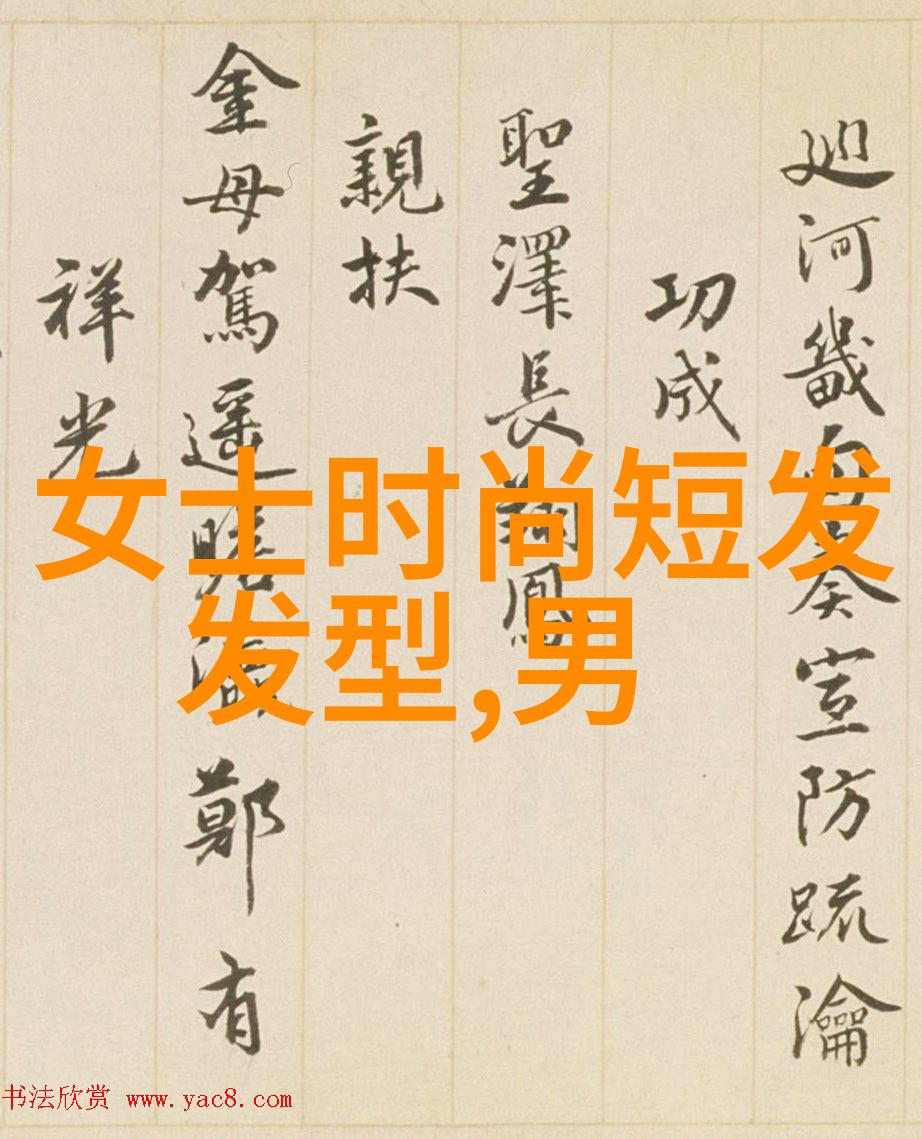 巡河畿甸奏宣防疏瀹
功成
聖澤長翔鳳
親扶
金母駕遥瞻 鄭有
祥光
女士时尚短发
发型,男
书法欣赏 www.yac8.com